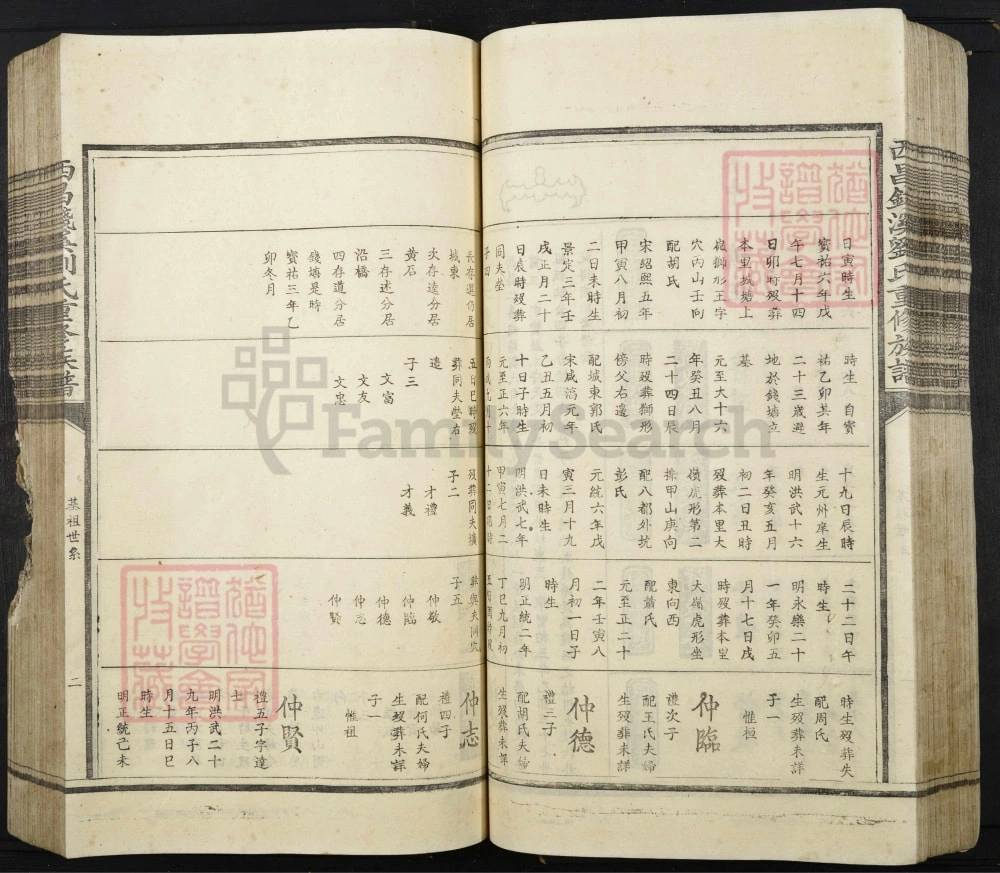 西昌錢溪劉氏重修族譜
日寅時生
寶祐六年戊
午七月十四
日卯時歿葬
本里城塘上
嶺獅形王字
穴丙山壬向
配胡氏
宋紹熙五年
甲寅八月初
二日未時生
景定三年壬
戌正月二十
日辰時歿葬
同夫塋
子四
長存遜仍居
城東
次存遠分居
黃石
三存述分居
沿橋
四存道分居
錢塘是時
寶祐三年乙
卯冬月
時生 自寶
祐乙卯其年
二十三歲避
地於錢塘立
基
元至大十六
年癸丑八月
二十四日辰
時歿葬獅形
傍父右邊
配城東郭氏
宋咸淳元年
乙丑五月初
十日子時生
元至正六年
丙戌九月十
五日巳時歿
葬同夫塋右
邊
子三
文富
文友
文忠
十九日辰時
生元州庠生
明洪武十六
年癸亥五月
初二日丑時
歿葬本里大
嶺虎形第二
排甲山庚向
配八都外坑
彭氏
元統六年戊
寅三月十九
日未時生
明洪武七年
甲寅七月二
十二日卯時
歿葬同夫墳
子二
才禮
才義
二十二日午
時生
明永樂二十
一年癸卯五
月十七日戌
時歿葬本里
大嶺虎形坐
東向西
配蕭氏
元至正二十
二年壬寅八
月初一日子
時生
明正統二年
丁巳九月初
五日酉時歿
葬與夫同穴
子五
仲敬
仲臨
仲德
仲志
仲賢
時生歿葬失
配周氏
生歿葬未詳
子一
惟桓
仲臨
禮次子
配王氏夫婦
生歿葬未詳
仲德
禮三子
配胡氏夫婦
生歿葬未詳
仲志
禮四子
配何氏夫婦
生歿葬未詳
子一
惟祖
仲賢
禮五子字達
七
明洪武二十
九年丙子八
月十五日巳
時生
明正統己未
基祖世系
二
FamilySearch